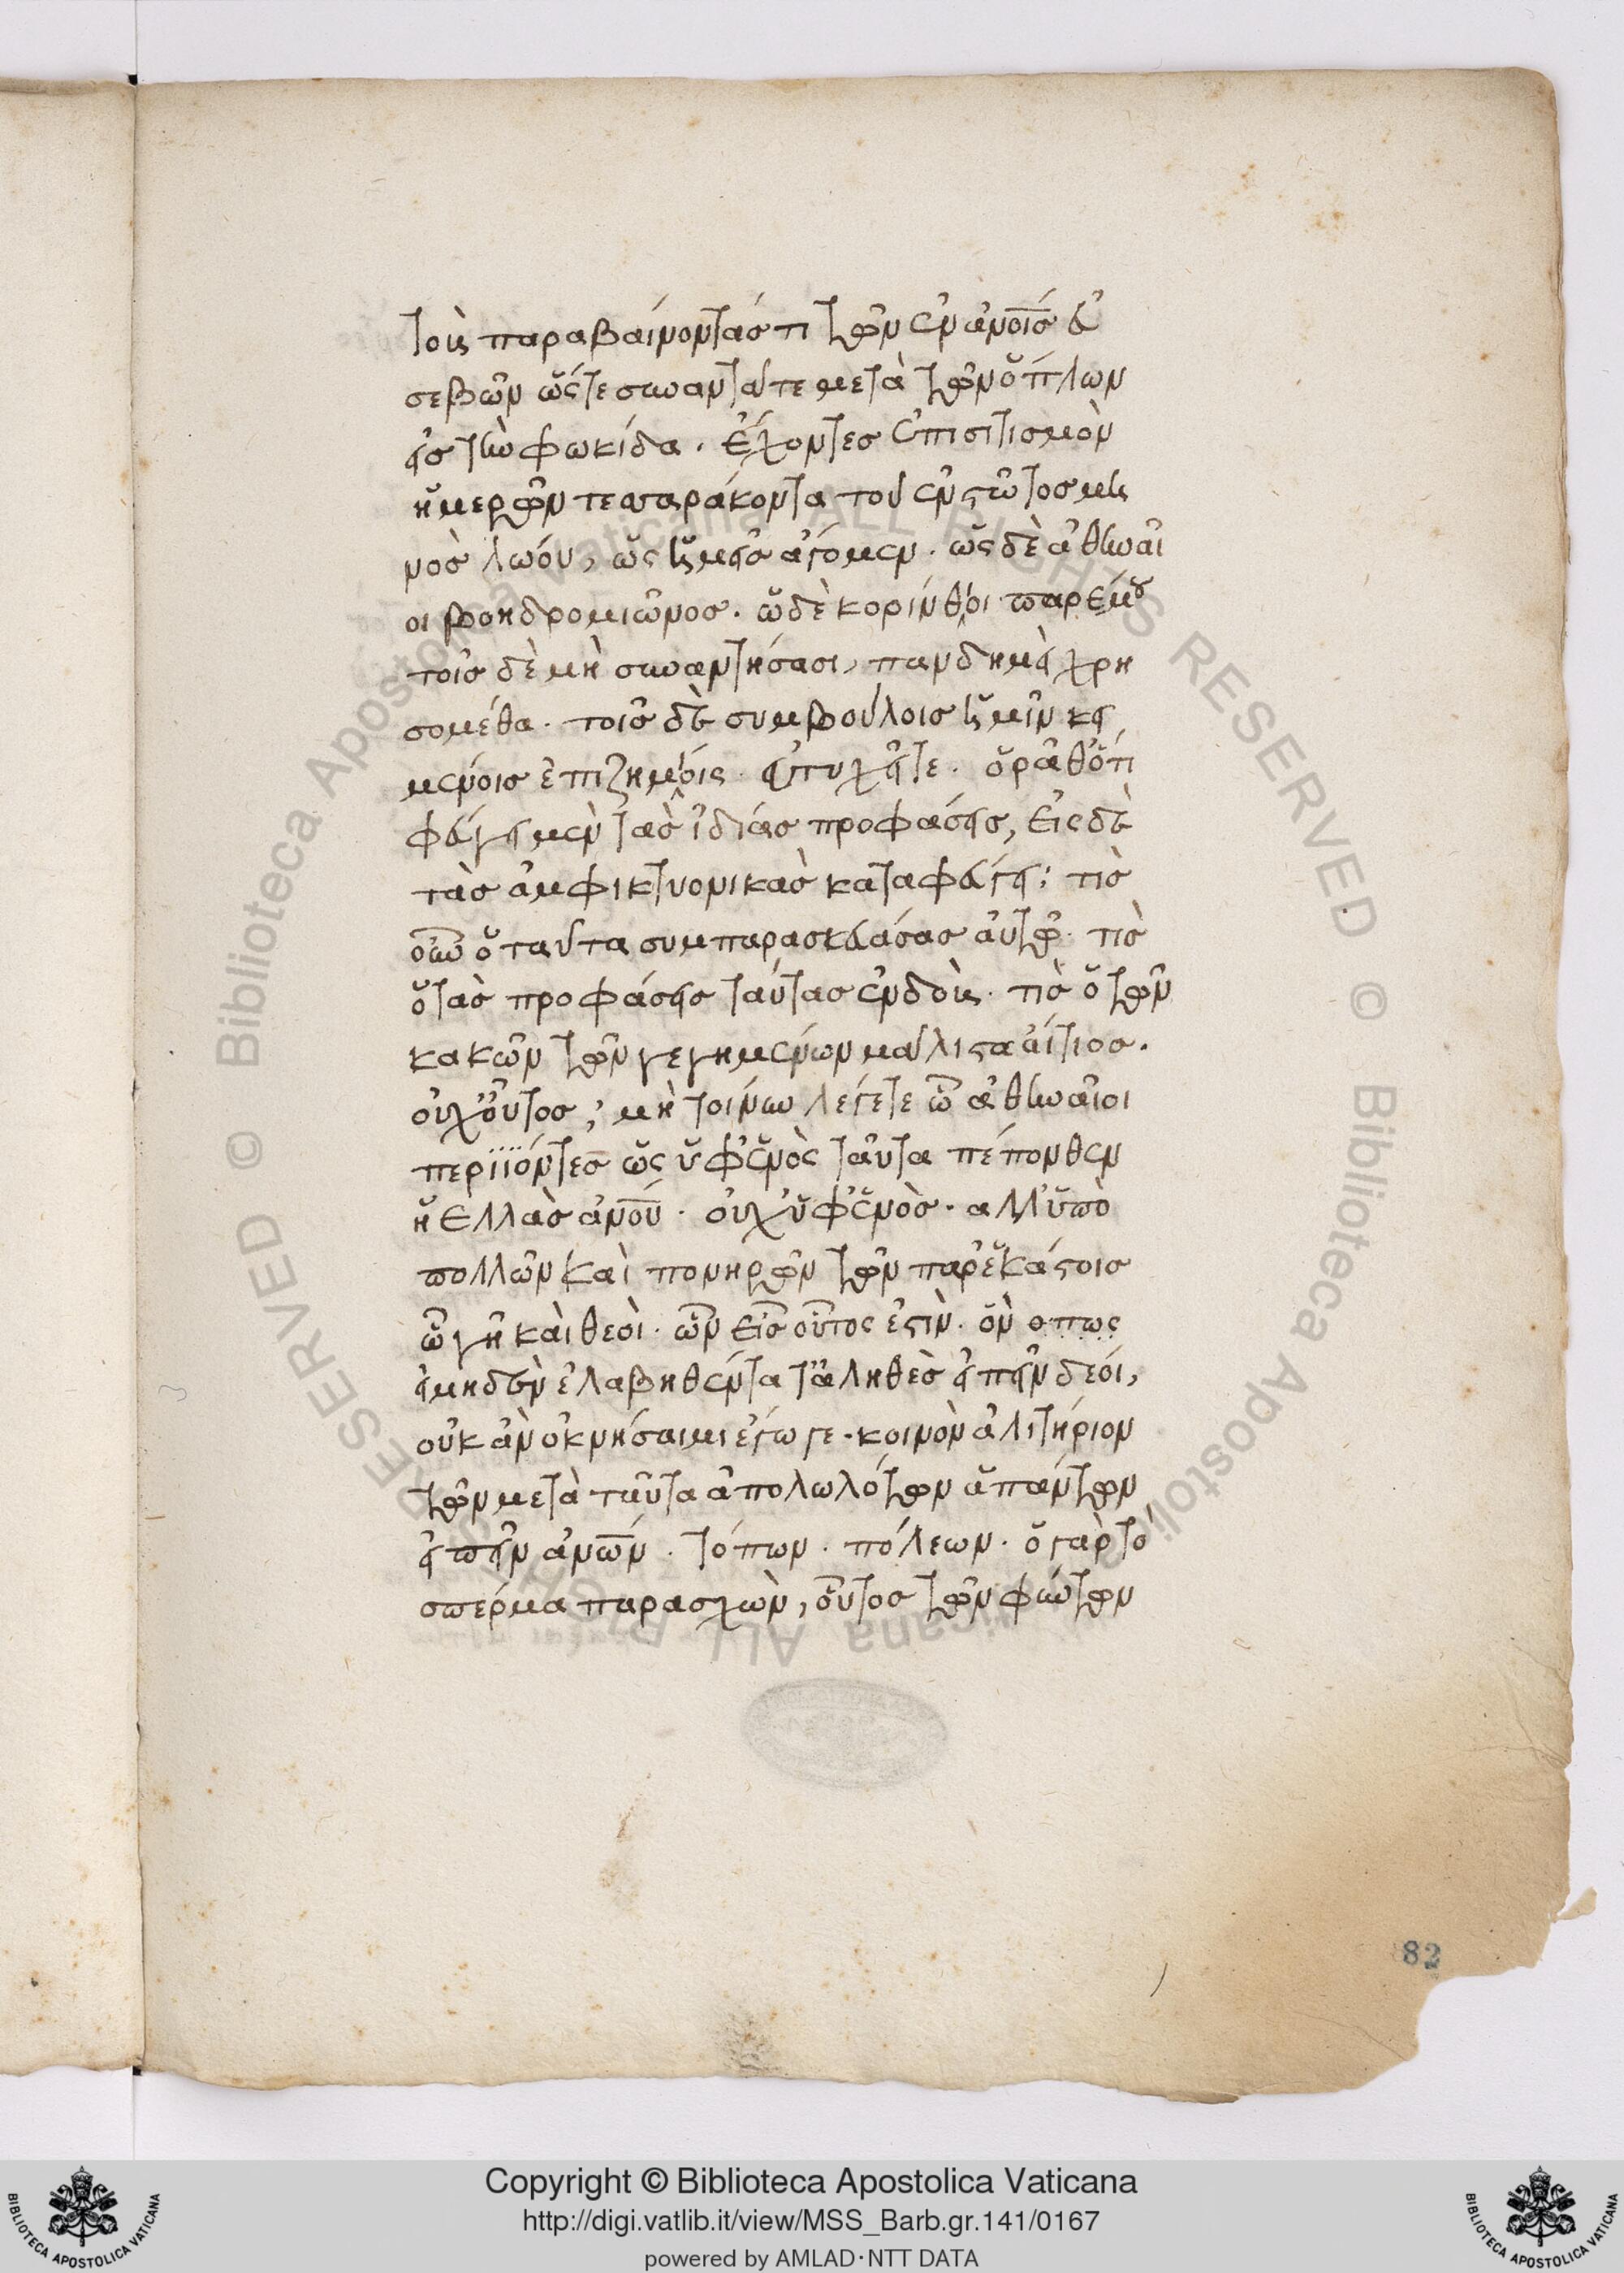 τοὺς παραβαίνοντάς τι τῶν ἐν ἀνοις εὐ
σεβῶν ὥστε συναντᾶτε μετὰ τῶν ὅπλων
εἰς τὴν φωκίδα. ἔχοντες ἐπισιτισμὸν
ἡμερῶν τεσσαράκοντα τοῦ ἐνεστῶτος μη
νὸς λώου, ὡς ἡμεῖς ἄγομεν. ὡς δὲ ἀθηναῖ
οι βοηδρομιῶνος. ὡ δὲ κορίνθιοι πανέμου
τοῖς δὲ μὴ συναντήσασι, πανδημεὶ χρη
σομέθα. τοῖς δὲ συμβούλοις ἡμῖν κει
μένοις ἐπιζημίοις. εὐτυχεῖτε. ὁρᾶθ' ὅτι
φεύγει μὲν τὰς ἰδίας προφάσεις, εἰς δὲ
τὰς ἀμφικτυονικὰς καταφεύγει; τίς
οὖν ὁ ταῦτα συμπαρασκευάσας αὐτῷ. τίς
ὁ τὰς προφάσεις ταύτας ἐνδούς. τίς ὁ τῶν
κακῶν τῶν γεγενημένων μάλιστα αἴτιος.
οὐχ οὗτος; μὴ τοίνυν λέγετε ὦ ἀθηναῖοι
περιϊόντες ὡς ὑφ' ἑνὸς ταῦτα πέπονθεν
ἡ Ἑλλὰς ἀνου. οὐχ ὑφ' ἑνὸς. αλλ' ὑπὸ
πολλῶν καὶ πονηρῶν τῶν παρ' ἑκάστοις
ὦ γῆ καὶ θεοὶ. ὧν εἷς οὗτος ἐστὶν. ὃν οπως
εἰ μηδὲν ἐλαβηθέντα τἀληθὲς εἰπεῖν δέοι,
οὐκ ἂν ὀκνήσαιμι ἔγωγε. κοινὸν ἀλιτήριον
τῶν μετὰ ταῦτα ἀπολωλότων ἁπάντων
εἰπεῖν ἀνων. τόπων. πόλεων. ὁ γὰρ τὸ
σπέρμα παρασχὼν, οὗτος τῶν φύντων
82
Copyright © Biblioteca Apostolica Vaticana
http://digi.vatlib.it/view/MSS_Barb.gr.141/0167
powered by AMLAD·NTT DATA